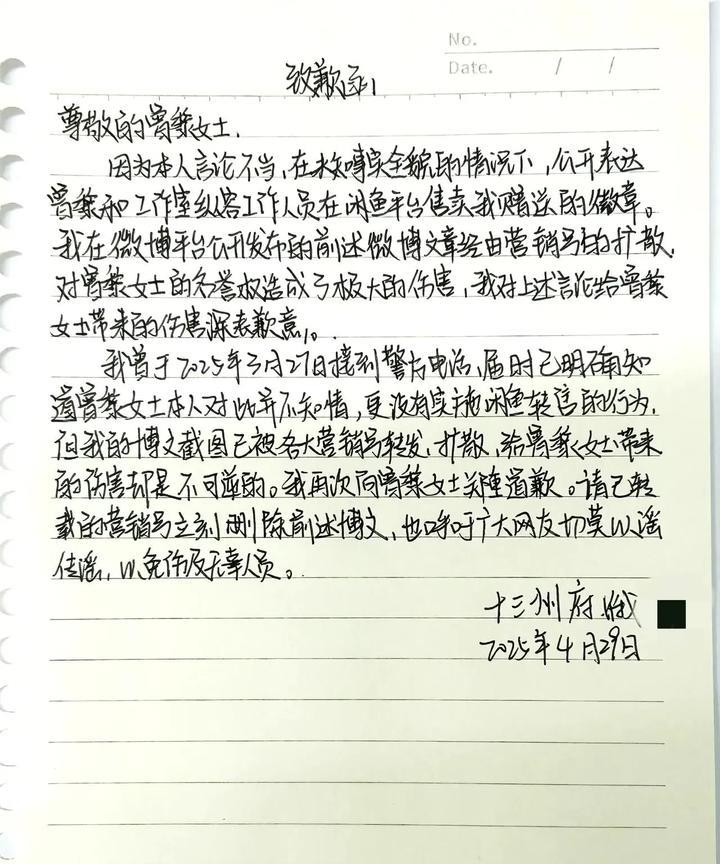 No.
Date. / /
致歉函
尊敬的曾黎女士.
因为本人言论不当,在未知实全貌的情况下,公开表达
曾黎和工作室纵容工作人员在闲鱼平台售卖我赠送的徽章。
我在微博平台公开发布的前述微博文章经由营销号的扩散,
对曾黎女士的名誉权造成了极大的伤害,我对上述言论给曾黎
女士带来的伤害深表歉意。
我曾于2025年3月27日接到警方电话,届时已明确知
道曾黎女士本人对此并不知情,更没有实施闲鱼转售的行为,
但我的博文截图已被各大营销号转发、扩散,给曾黎女士带来
的伤害却是不可逆的。我再次向曾黎女士道歉。请已转
载的营销号立刻删除前述博文,也呼吁广大网友切莫以谣
传谣,以免伤及无辜人员。
十三州府
2025年4月29日